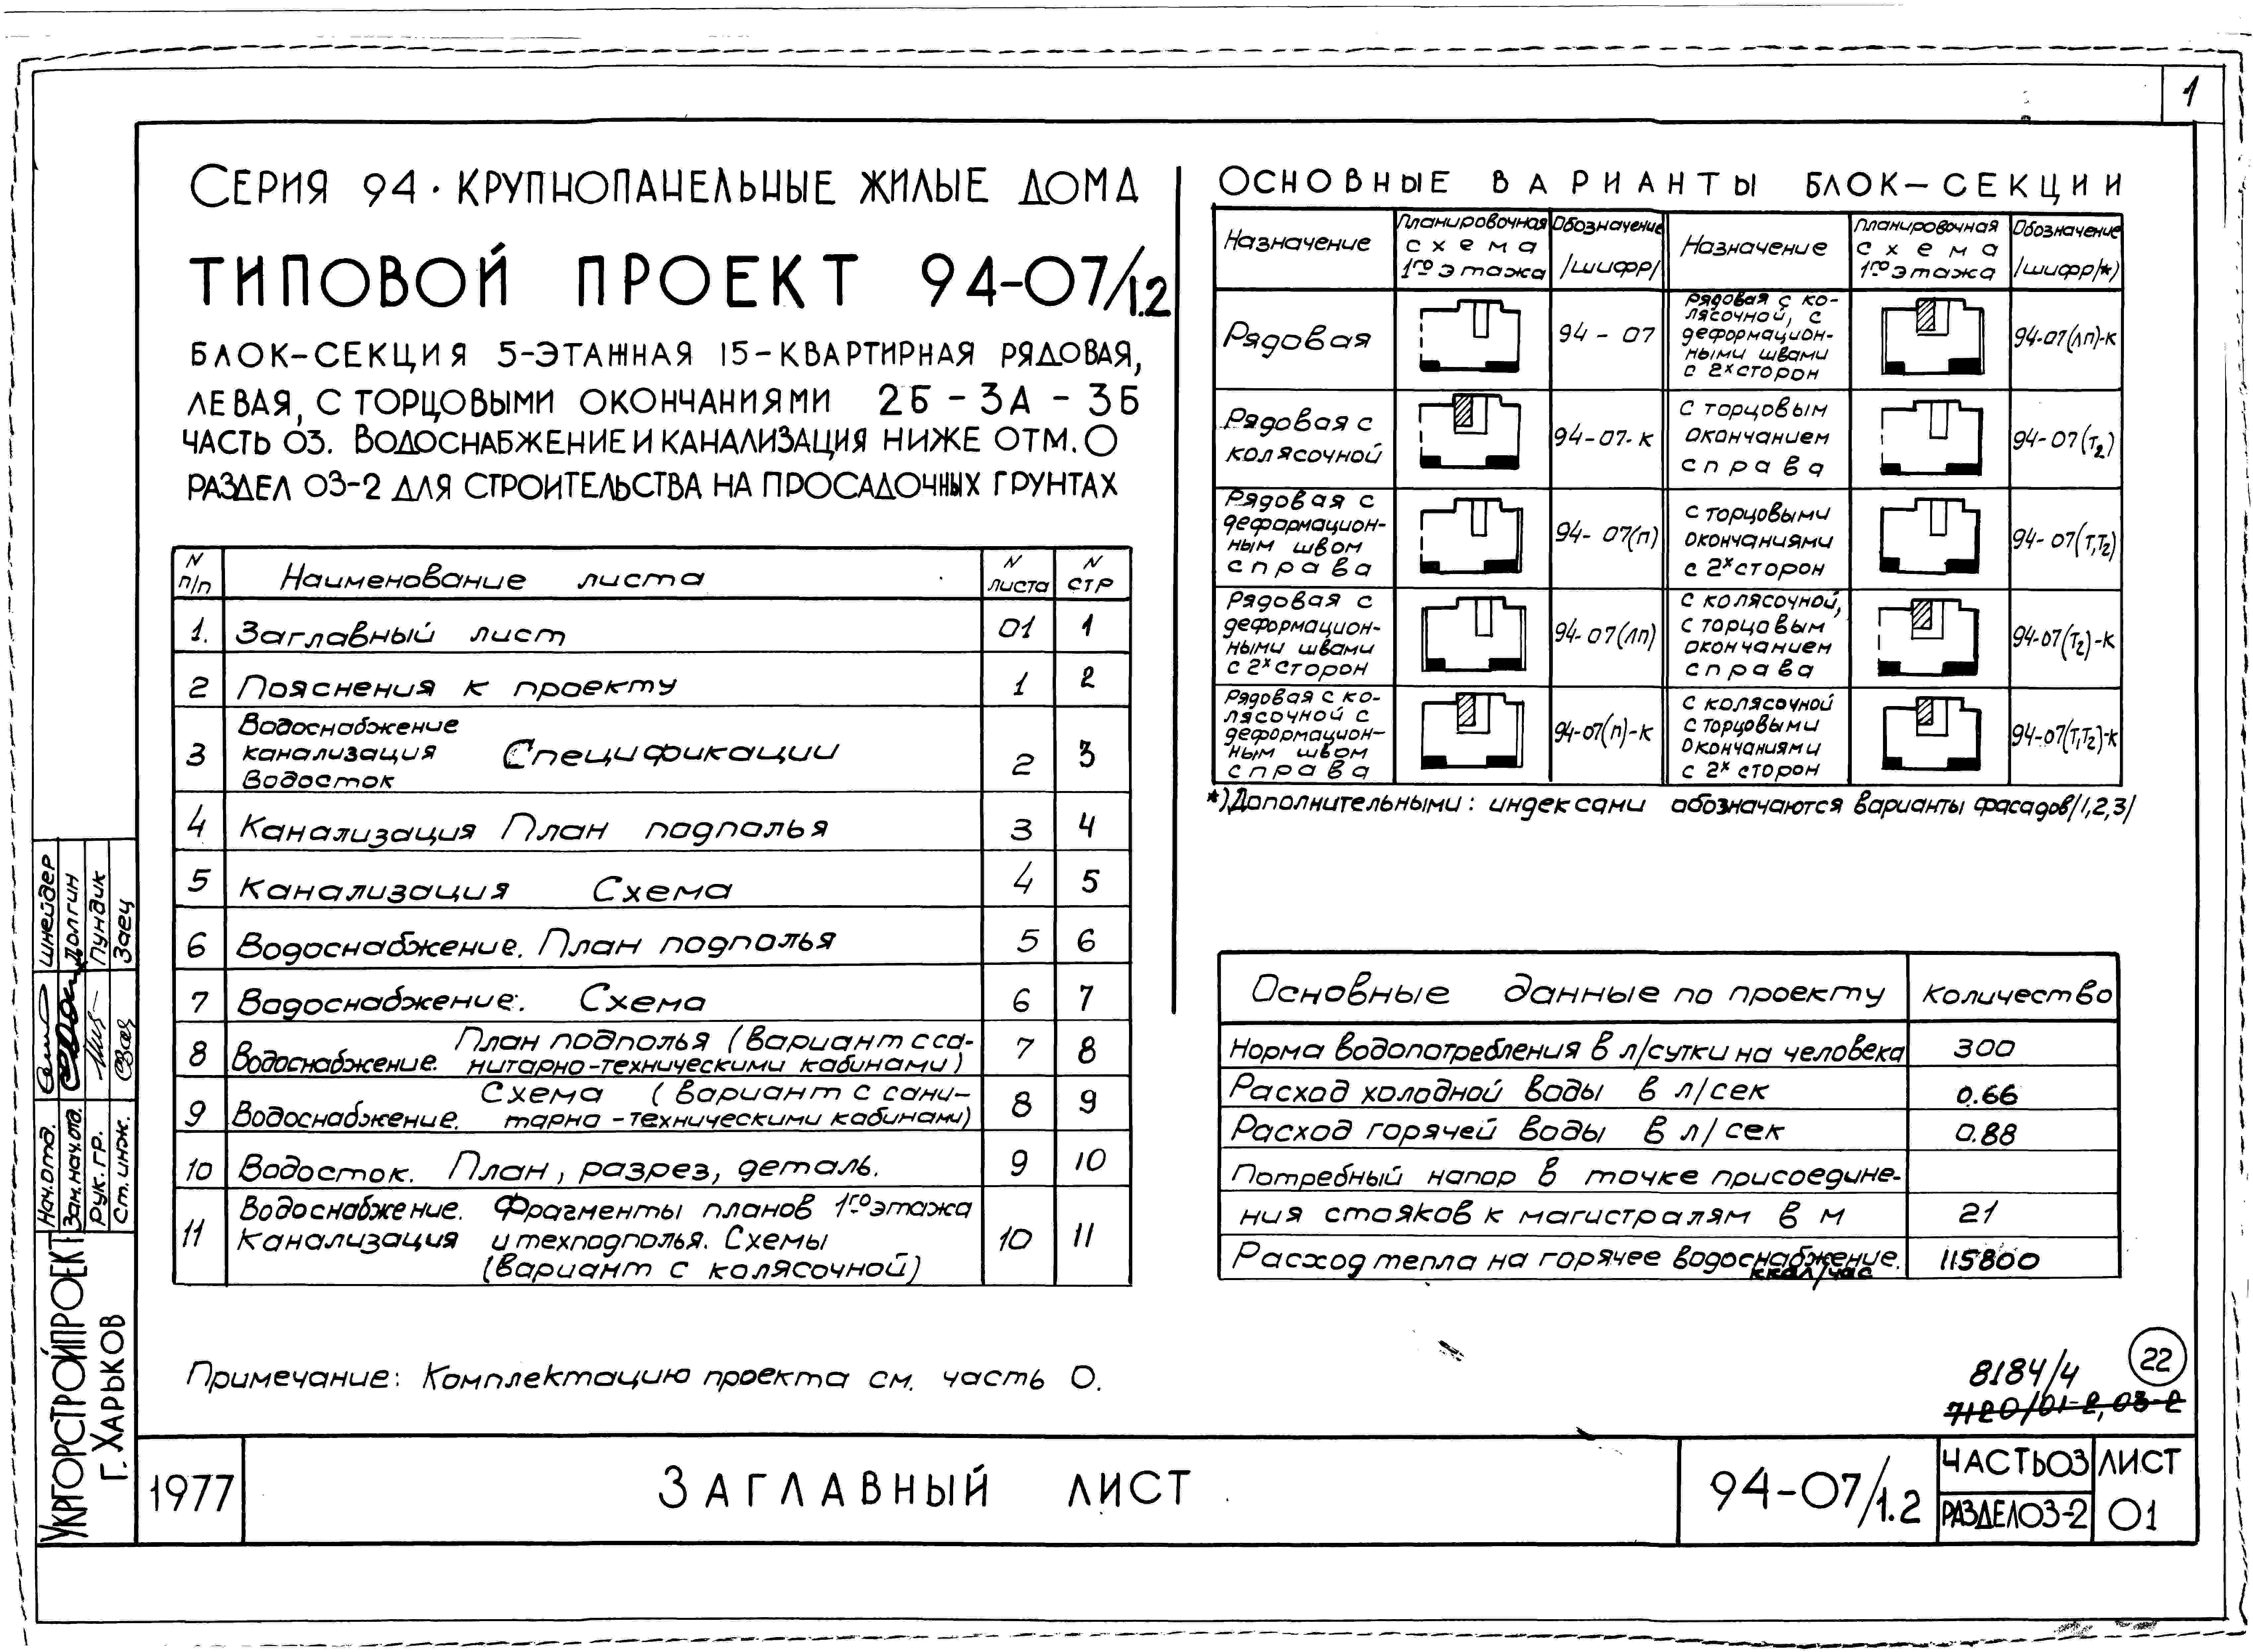 1
СЕРИЯ 94 · КРУПНОПАНЕЛЬНЫЕ ЖИЛЫЕ ДОМА
ТИПОВОЙ ПРОЕКТ 94-07/1.2
БЛОК-СЕКЦИЯ 5-ЭТАЖНАЯ 15-КВАРТИРНАЯ РЯДОВАЯ,
ЛЕВАЯ, С ТОРЦОВЫМИ ОКОНЧАНИЯМИ 2Б - 3А - 3Б
ЧАСТЬ 03. ВОДОСНАБЖЕНИЕ И КАНАЛИЗАЦИЯ НИЖЕ ОТМ. О
РАЗДЕЛ 03-2 ДЛЯ СТРОИТЕЛЬСТВА НА ПРОСАДОЧНЫХ ГРУНТАХ
N п/п Наименование листа N листа N стр
1. Заглавный лист 01 1
2 Пояснения к проекту 1 2
3 Водоснабжение канализация Водосток Спецификации 2 3
4 Канализация План подполья 3 4
5 Канализация Схема 4 5
6 Водоснабжение. План подполья 5 6
7 Водоснабжение. Схема 6 7
8 Водоснабжение. План подполья (вариант с са-
нитарно-техническими кабинами) 7 8
9 Водоснабжение. Схема (вариант с сани-
тарно-техническими кабинами) 8 9
10 Водосток. План, разрез, деталь. 9 10
11 Водоснабжение. Фрагменты планов 1го этажа
Канализация и техподполья. Схемы
(вариант с колясочной) 10 11
Примечание: Комплектацию проекта см. часть О.
ОСНОВНЫЕ ВАРИАНТЫ БЛОК-СЕКЦИИ
Назначение Планировочная схема 1го этажа Обозначение /шифр/ Назначение Планировочная схема 1го этажа Обозначение /шифр/*)
Рядовая 94-07
Рядовая с ко-
лясочной, с
деформацион-
ными швами
с 2х сторон 94-07(лп)-к
Рядовая с
колясочной 94-07-к
С торцовым
окончанием
справа 94-07(т2)
Рядовая с
деформацион-
ным швом
справа 94-07(п)
С торцовыми
окончаниями
с 2х сторон 94-07(т,т2)
Рядовая с
деформацион-
ными швами
с 2х сторон 94-07(лп)
С колясочной,
с торцовым
окончанием
справа 94-07(т2)-к
Рядовая с ко-
лясочной с
деформацион-
ным швом
справа 94-07(п)-к
С колясочной
с торцовыми
окончаниями
с 2х сторон 94-07(т,т2)-к
*) Дополнительными: индексами обозначаются варианты фасадов/1,2,3/
Основные данные по проекту Количество
Норма водопотребления в л/сутки на человека 300
Расход холодной воды в л/сек 0.66
Расход горячей воды в л/сек 0.88
Потребный напор в точке присоедине-
ния стояков к магистралям в м 21
Расход тепла на горячее водоснабжение. ккал/час 115800
22
8184/4
7120/01-2, 03-2
Нач.отд. Шнейдер
Зам.нач.отд. Долгин
Рук.гр. Пундик
Ст.инж. Заец
УКРГОРСТРОЙПРОЕКТ
Г. ХАРЬКОВ
1977
ЗАГЛАВНЫЙ ЛИСТ
94-07/1.2
ЧАСТЬ 03
РАЗДЕЛ 03-2
ЛИСТ
01